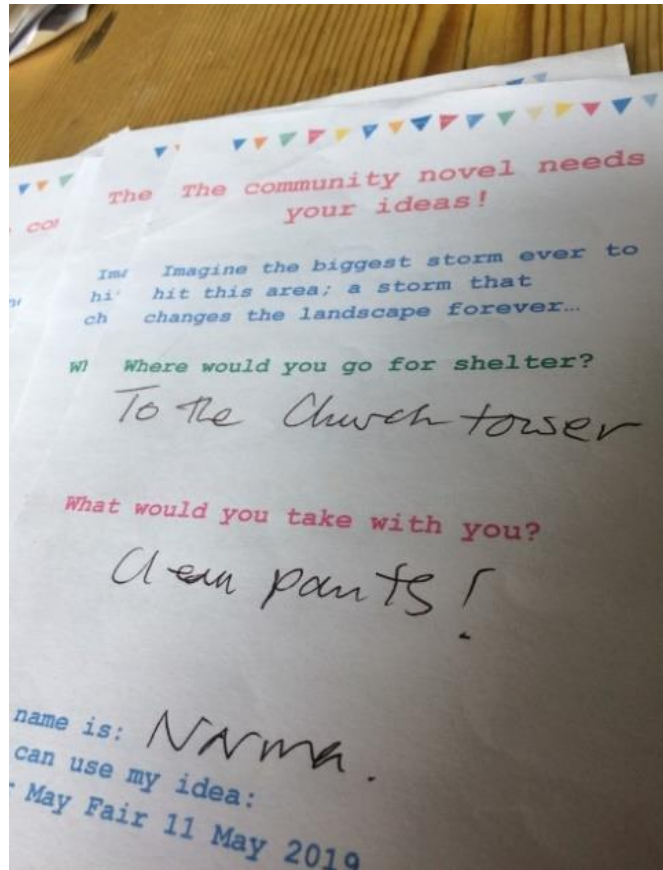 The community novel needs
your ideas!
Imagine the biggest storm ever to
hit this area; a storm that
changes the landscape forever…
Where would you go for shelter?
To the Church tower
What would you take with you?
Clean pants!
name is: Norma.
can use my idea:
May Fair 11 May 2019